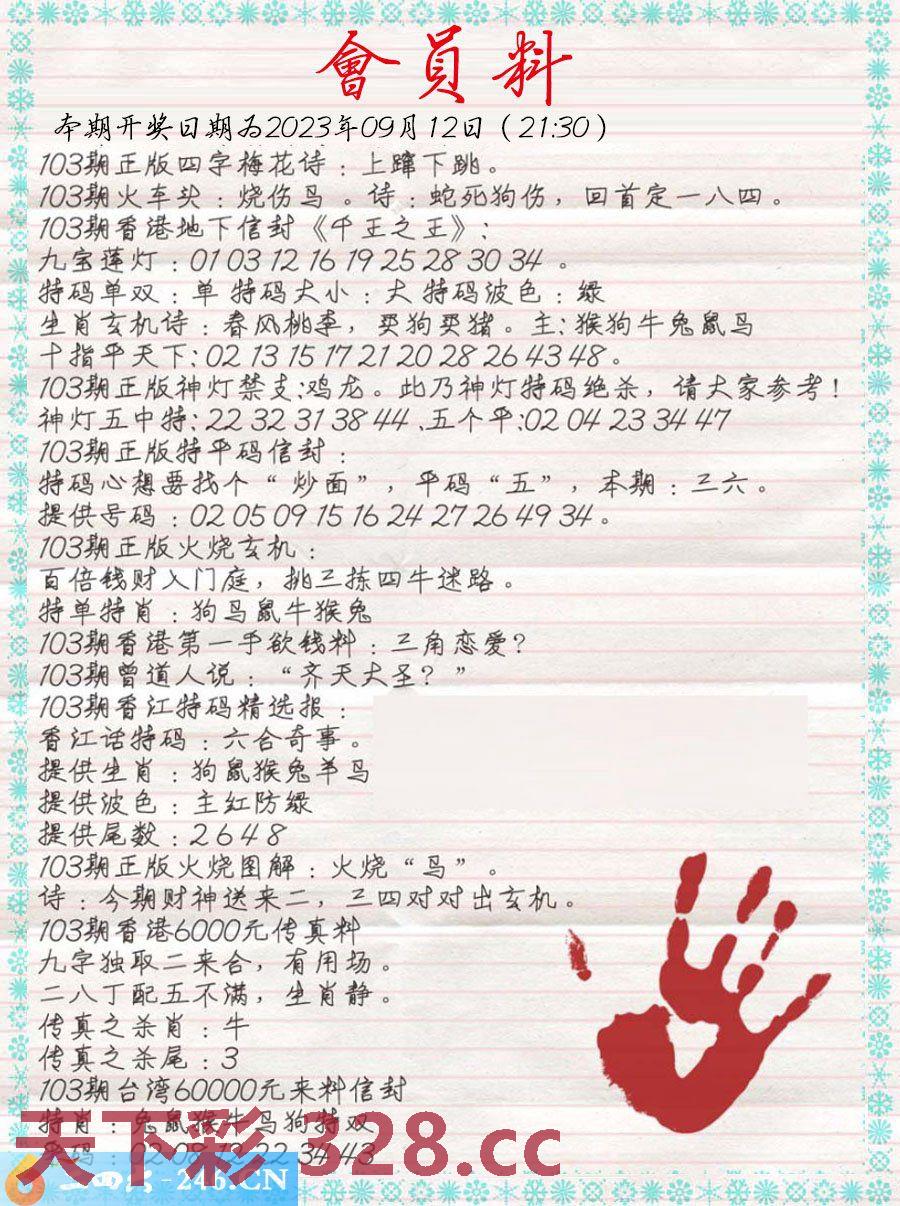 會員料
本期开奖日期为2023年09月12日（21:30）
103期正版四字梅花诗：上蹿下跳。
103期火车头：烧伤鸟 。诗：蛇死狗伤，回首定一八四。
103期香港地下信封《千王之王》：
九宝莲灯：01 03 12 16 19 25 28 30 34 。
特码单双：单 特码大小：大 特码波色：绿
生肖玄机诗：春风桃李，买狗买猪。主：猴狗牛兔鼠鸟
十指平天下：02 13 15 17 21 20 28 26 43 48。
103期正版神灯禁支:鸡龙。此乃神灯特码绝杀，请大家参考！
神灯五中特：22 32 31 38 44 .五个平:02 04 23 34 47
103期正版特平码信封：
特码心想要找个“炒面”，平码“五”，本期：三六。
提供号码：02 05 09 15 16 24 27 26 49 34。
103期正版火烧玄机：
百倍钱财入门庭，挑三拣四牛迷路。
特单特肖：狗鸟鼠牛猴兔
103期香港第一手欲钱料：三角恋爱？
103期曾道人说：“齐天大圣？”
103期香江特码精选报：
香江话特码：六合奇事。
提供生肖：狗鼠猴兔羊鸟
提供波色：主红防绿
提供尾数：2 6 4 8
103期正版火烧图解：火烧“鸟”。
诗：今期财神送来二，三四对对出玄机。
103期香港6000元传真料
九字独取二来合，有用场。
二八丁配五不满，生肖静。
传真之杀肖：牛
传真之杀尾：3
103期台湾60000元来料信封
特肖：兔鼠猴牛鸟狗特双
天下彩 328.cc
22 34 43
二四六-246.CN